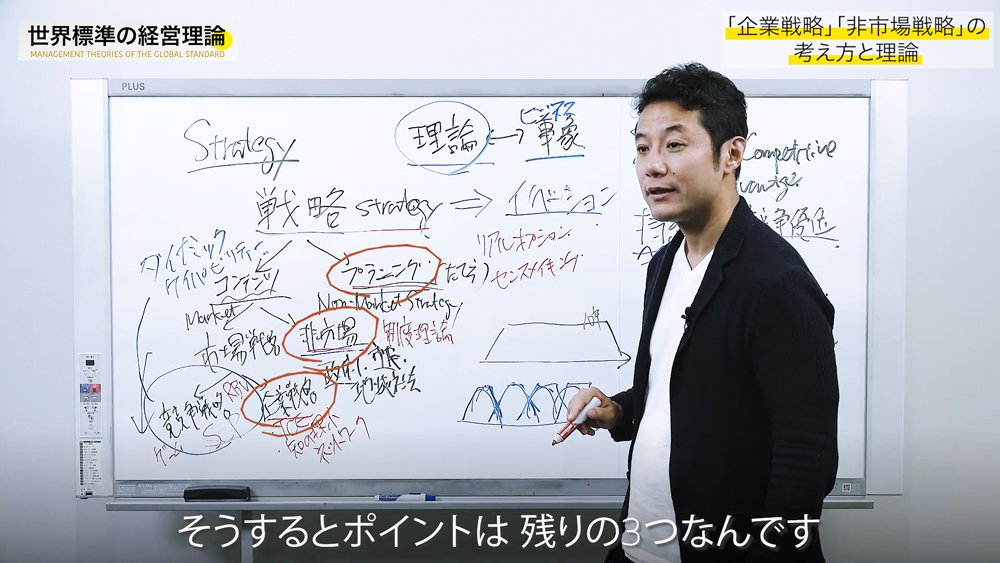 世界標準の経営理論
MANAGEMENT THEORIES OF THE GLOBAL STANDARD
「企業戦略」「非市場戦略」の
考え方と理論
PLUS
Strategy
理論
ビジネス
事象
戦略 strategy
イノベーション
ダイナミック
ケイパビリティ
コンテンツ
プランニング
(たてる)
リアルオプション
センスメイキング
Non-Market Strategy
Market
市場戦略
非市場
制度理論
政府
地域社会
10年
競争戦略
RBV
SCP
ゲーム
企業戦略
TCE
知の探索
ネットワーク
Competitive
競争優位
そうするとポイントは 残りの3つなんです